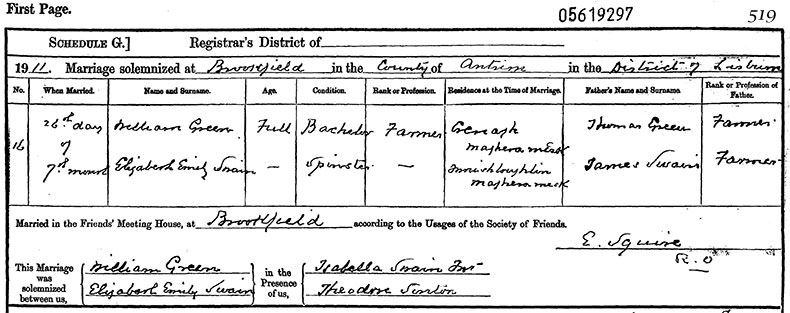 First Page.
05619297
519
SCHEDULE G.] Registrar's District of
1911. Marriage solemnized at Brookfield in the County of Antrim in the District of Lisburn
No. When Married. Name and Surname. Age. Condition. Rank or Profession. Residence at the Time of Marriage. Father's Name and Surname. Rank or Profession of Father.
16
26th day of 7th month
William Green Full Bachelor Farmer Crenagh maghera mesk Thomas Green Farmer
Elizabeth Emily Swain — Spinster — Innishloughlin maghera mesk James Swain Farmer
Married in the Friends' Meeting House, at Brookfield according to the Usages of the Society of Friends.
E. Squire
R.O
This Marriage was solemnized between us,
William Green
Elizabeth Emily Swain
in the Presence of us,
Isabella Swain
Theodore Sinton